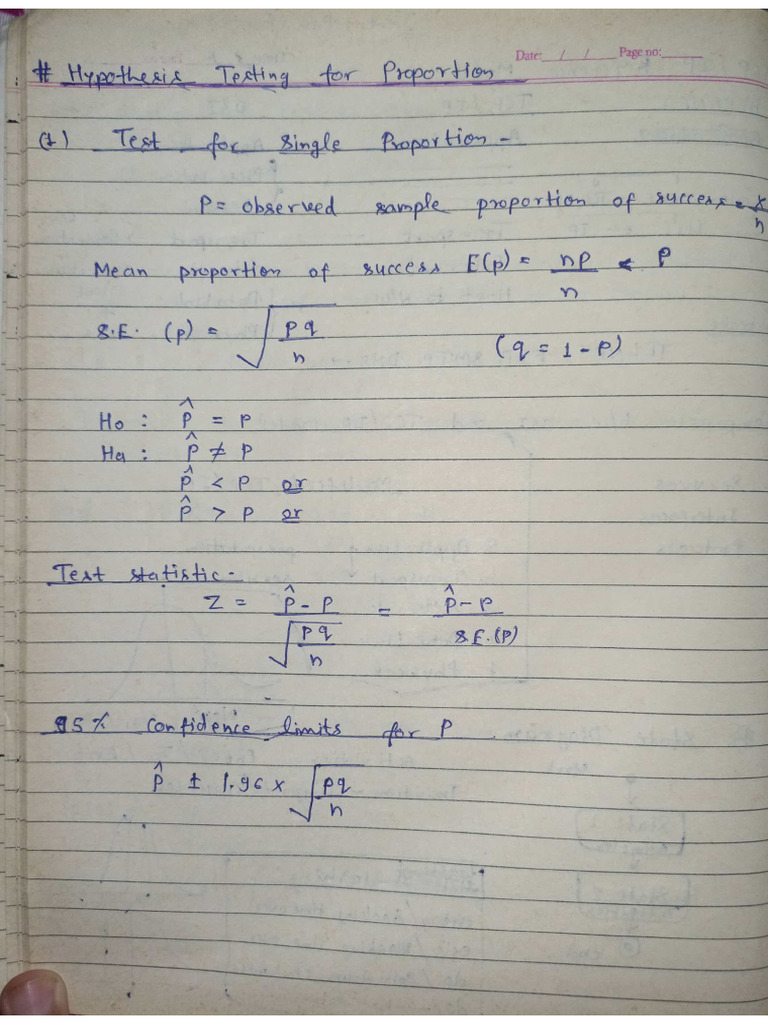 Date: __/__/__ Page no: ______
# Hypothesis Testing for Proportion
(1) Test for Single Proportion -
P = observed sample proportion of success = x/n
Mean proportion of success E(p) = nP/n = P
S.E. (p) = √(pq/n) (q = 1 - P)
Ho : P̂ = P
Ha : P̂ ≠ P
P̂ < P or
P̂ > P or
Test statistic -
Z = (P̂ - P)/√(pq/n) = (P̂ - P)/S.E.(P)
95% confidence limits for P.
P̂ ± 1.96 x √(pq/n)